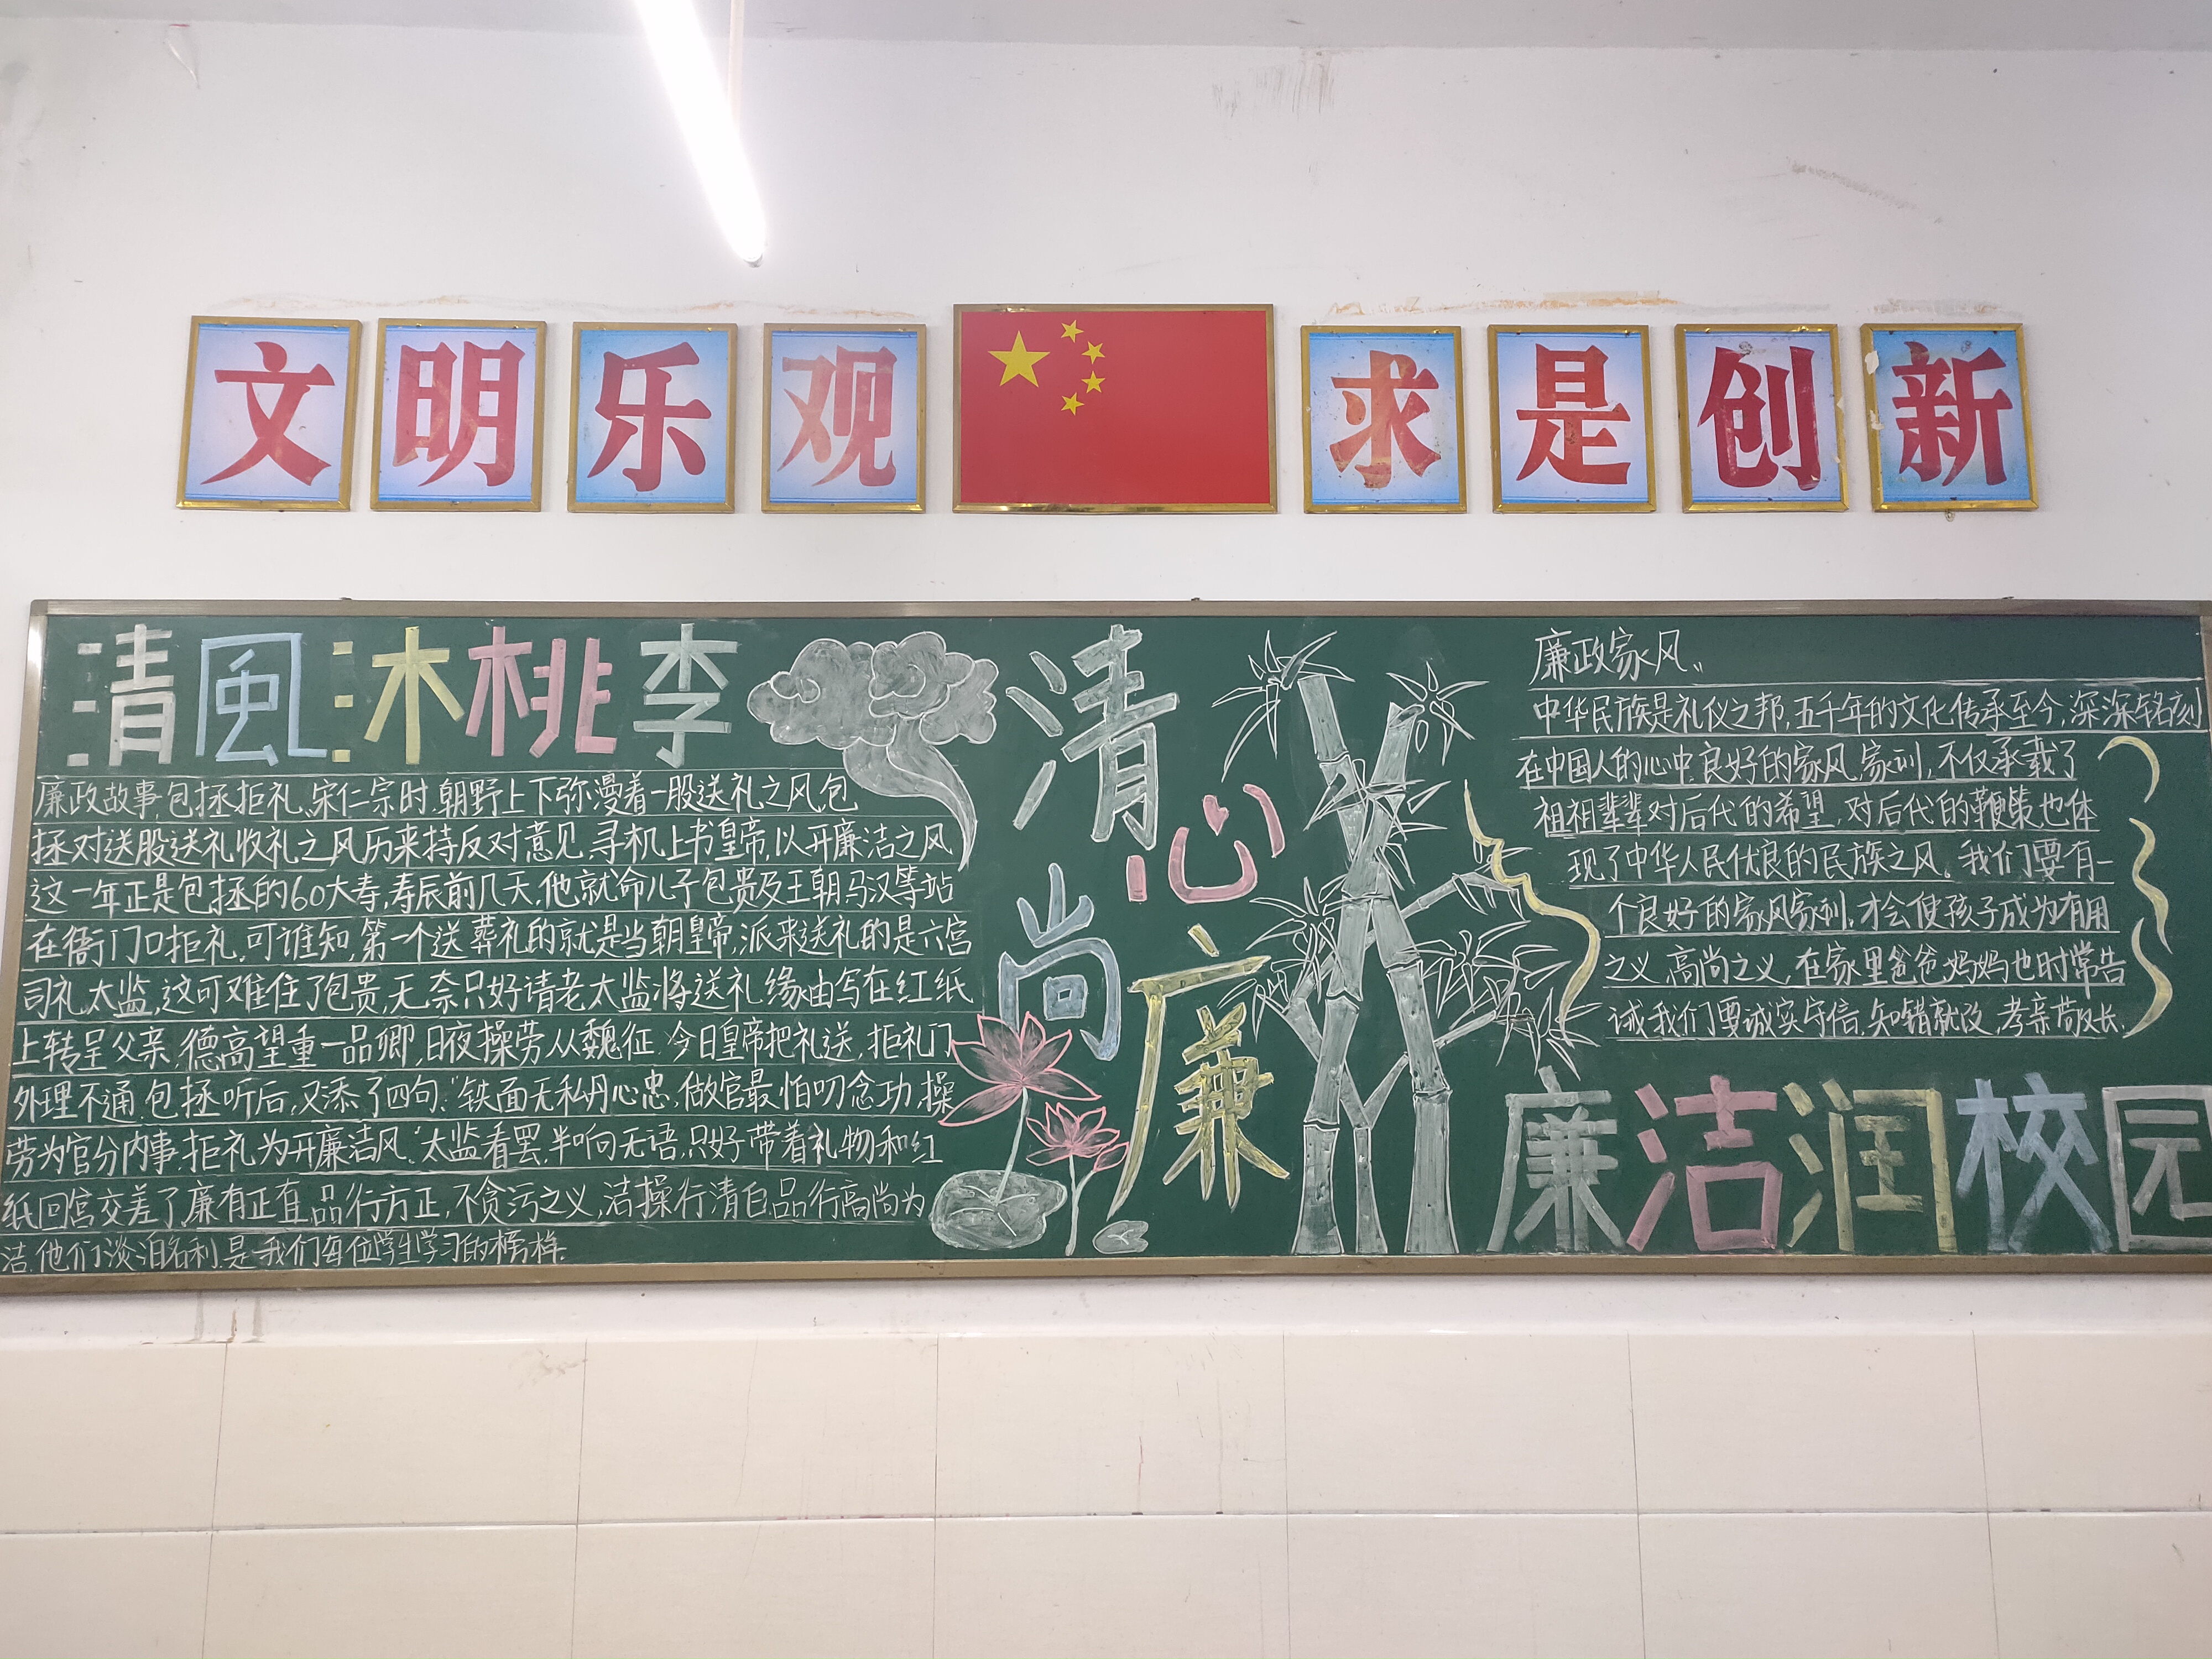 文明乐观 求是创新
清風沐桃李
廉政故事,包拯拒礼、宋仁宗时.朝野上下弥漫着一股送礼之风,包
拯对送股送礼收礼之风历来持反对意见,寻机上书皇帝,以开廉洁之风
这一年正是包拯的60大寿,寿辰前几天,他就命儿子包贵及王朝马汉等站
在衙门口拒礼.可谁知,第一个送葬礼的就是当朝皇帝,派来送礼的是六宫
司礼太监,这可难住了包贵,无奈只好请老太监将送礼缘由写在红纸
上转呈父亲,德高望重一品卿,日夜操劳从魏征.今日皇帝把礼送,拒礼门
外理不通.包拯听后,又添了四句:“铁面无私丹心忠,做官最怕叨念功,操
劳为官分内事,拒礼为开廉洁风.”太监看罢,半响无语,只好带着礼物和红
纸回宫交差了廉有正直,品行方正,不贪污之义,洁操行清白,品行高尚为
洁.他们淡泊名利.是我们每位学生学习的榜样.
清心
尚廉
廉政家风、
中华民族是礼仪之邦,五千年的文化传承至今,深深铭刻
在中国人的心中.良好的家风家训,不仅承载了
祖祖辈辈对后代的希望,对后代的鞭策,也体
现了中华人民优良的民族之风。我们要有一
个良好的家风家训,才会使孩子成为有用
之义、高尚之义,在家里爸爸妈妈也时常告
诫我们要诚实守信、知错就改,孝亲敬长.
廉洁润校园